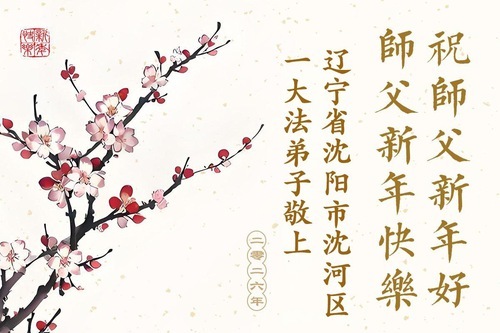 祝師父新年好
師父新年快樂
辽宁省沈阳市沈河区
一大法弟子敬上
二零二六年
新年快樂